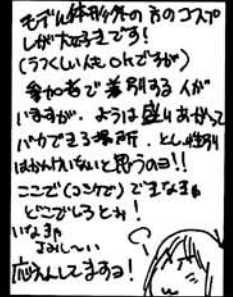 モデル体形外の方のコスプ
レが大好きです!
(うつくしい人も okですが)
参加者で差別する人が
いますが、ようは盛りあがって
バカできる場所、とし、性別
はかんけいないと思うのヨ!!
ここで(コミケで)できなきゃ
どこでしろと お!
応えんしてますヨ!